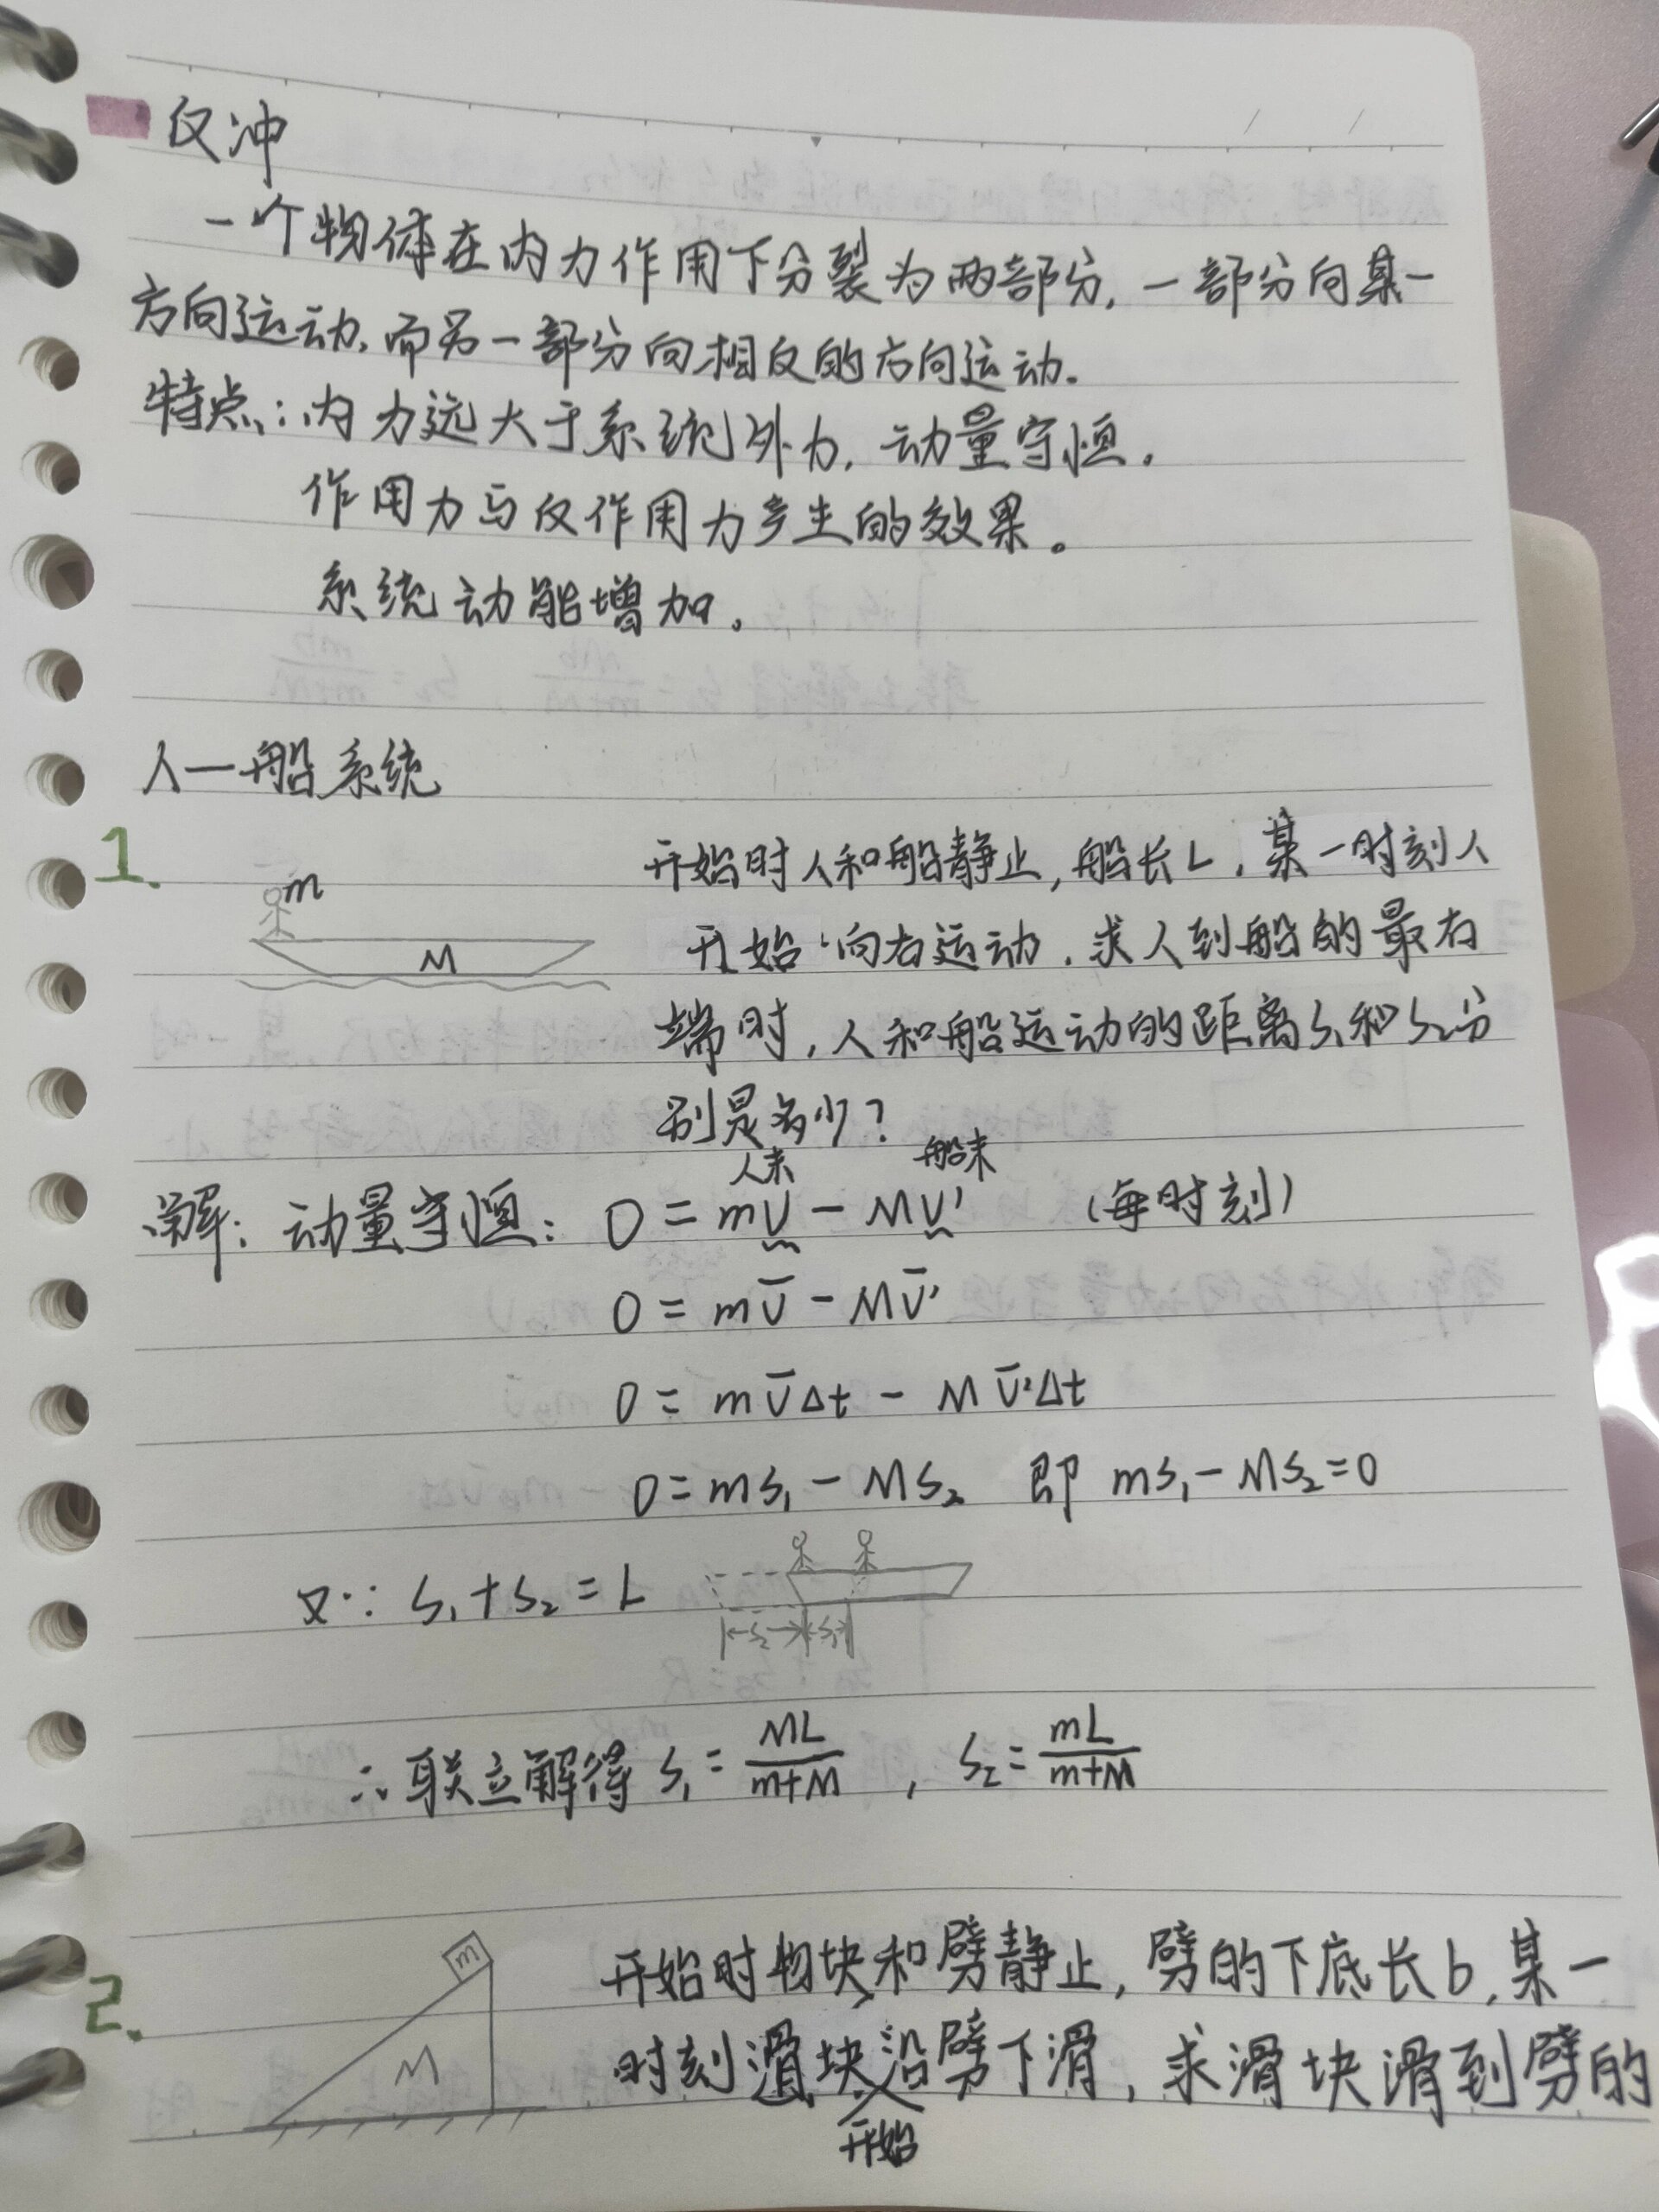 反冲
一个物体在内力作用下分裂为两部分,一部分向某一
方向运动,而另一部分向相反的方向运动.
特点:内力远大于系统外力,动量守恒.
作用力与反作用力产生的效果。
系统动能增加。
人—船系统
1.
m
M
开始时人和船静止,船长L,某一时刻人
开始向右运动.求人到船的最右
端时,人和船运动的距离s₁和s₂分
别是多少?
人末 船末
解:动量守恒: 0 = mv - Mv' (每时刻)
0 = mv̄ - Mv̄'
0 = mv̄Δt - Mv̄'Δt
0 = ms₁ - Ms₂ 即 ms₁ - Ms₂ = 0
又∵ s₁ + s₂ = L
s₂ s₁
∴联立解得 s₁ = ML/(m+M) , s₂ = mL/(m+M)
2.
m
M
开始时物块和劈静止,劈的下底长b,某一
时刻滑块沿劈下滑,求滑块滑到劈的
开始